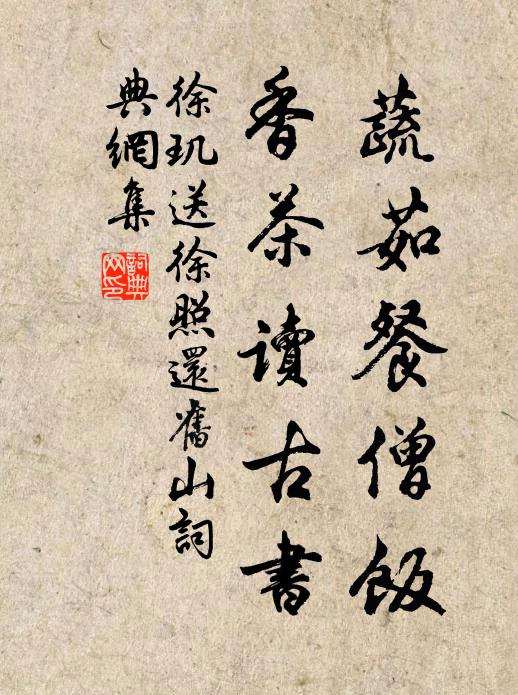 蔬茹餐僧飯
香茶讀古書
徐玑送徐照還舊山詞
典網集
詞典
网印